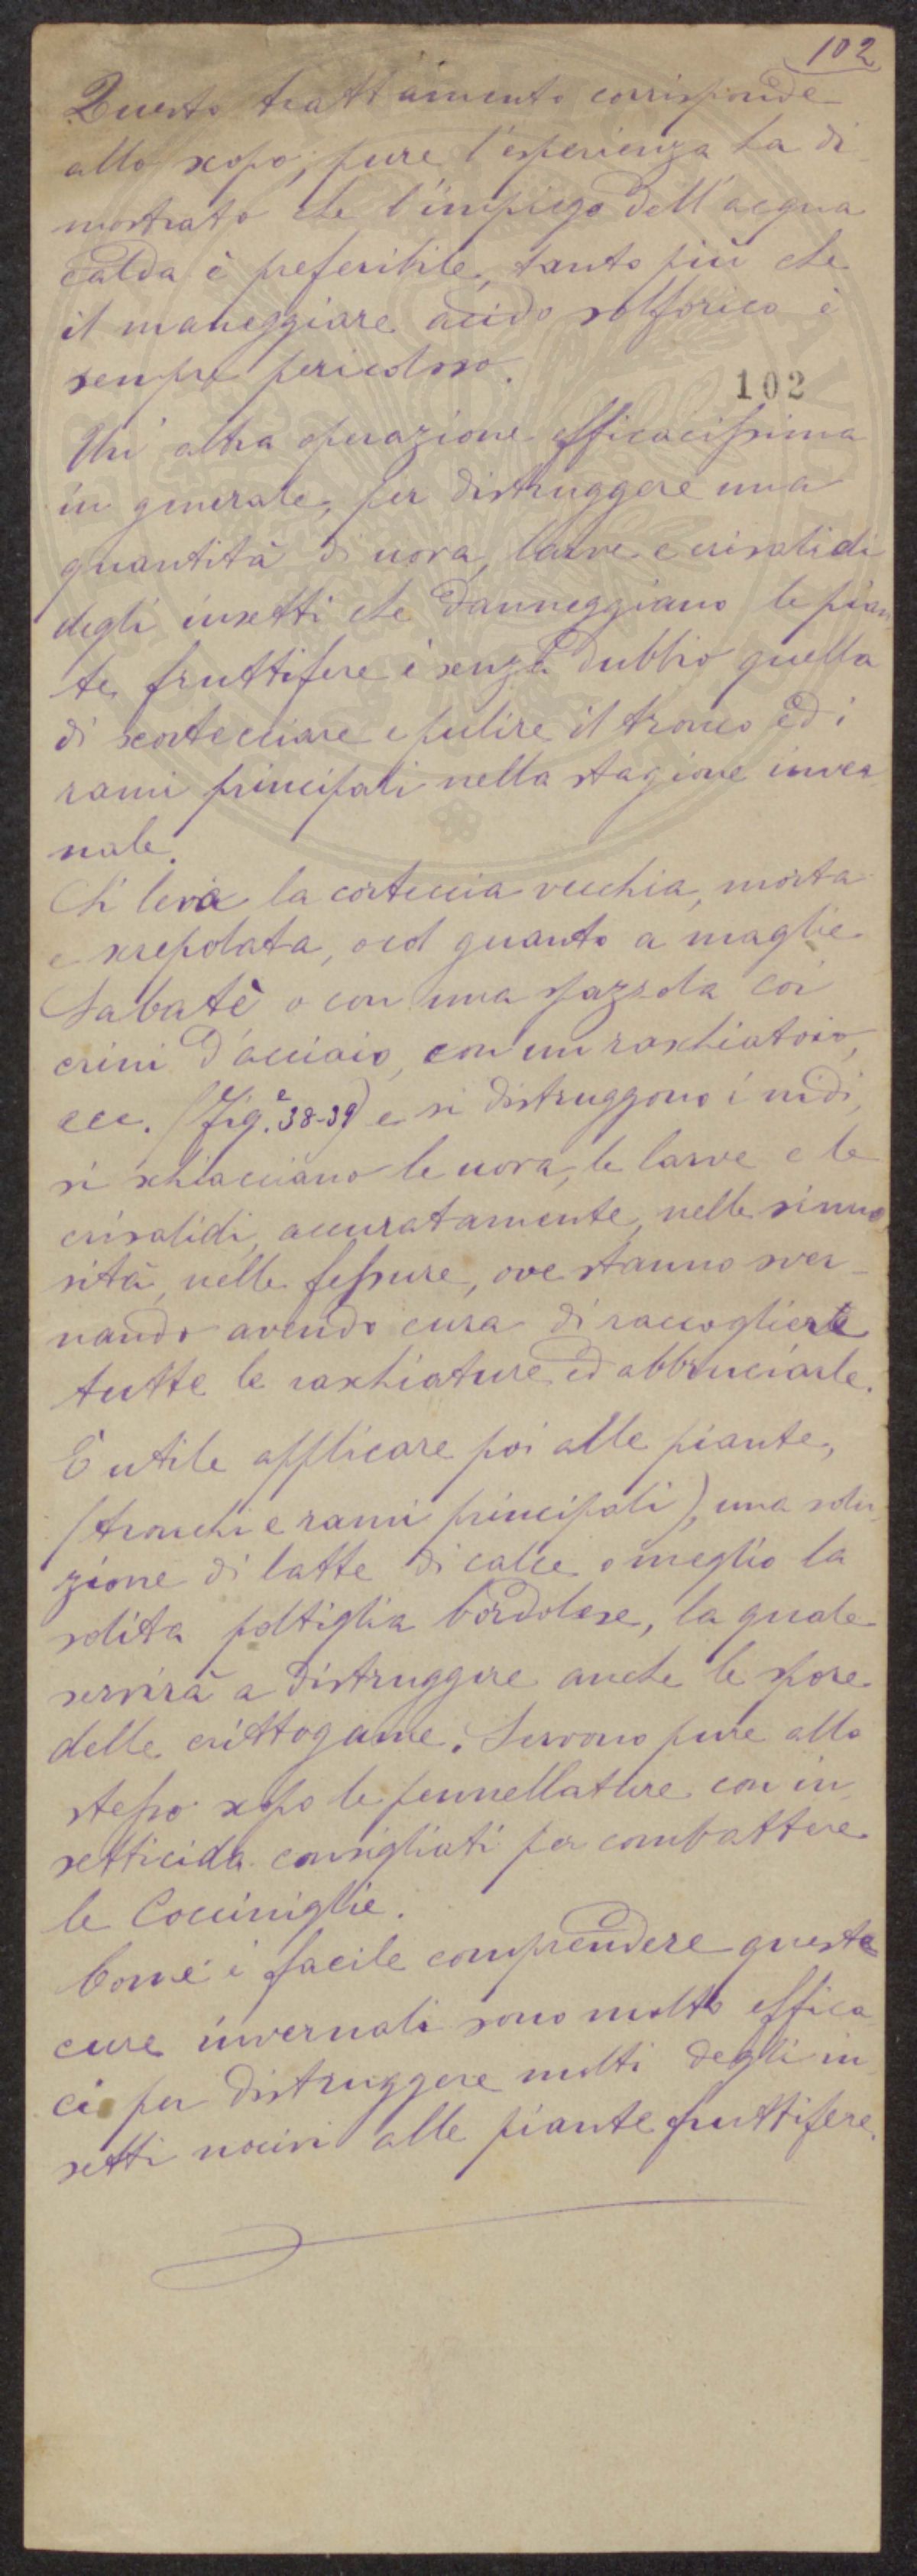 102
Questo trattamento corrisponde
allo scopo, pure l'esperienza ha di
mostrato che l'impiego dell'acqua
calda è preferibile, tanto più che
il maneggiare acido solforico è
sempre pericoloso.
102
Un' altra operazione efficacissima
in generale, per distruggere una
quantità di uova, larve e crisalidi
degli insetti che danneggiano le pian
te fruttifere è senza dubbio quella
di scortecciare e pulire il tronco ed i
rami principali nella stagione inver
nale.
Si leva la corteccia vecchia, morta
e screpolata, o col guanto a maglie
Sabatè o con una spazzola coi
crini d'acciaio, con un raschiatoio,
ecc. (Fig.e 38-39) e si distruggono i nidi,
si schiacciano le uova, le larve e le
crisalidi, accuratamente, nelle sinuo
sità, nelle fessure, ove stanno sver-
nando avendo cura di raccogliere
tutte le raschiature ed abbruciarle.
È utile applicare poi alle piante,
(tronchi e rami principali), una solu
zione di latte di calce o meglio la
solita poltiglia bordolese, la quale
servirà a distruggere anche le spore
delle crittogame. Servono pure allo
stesso scopo le pennellature con in
setticida consigliati per combattere
le Cocciniglie.
Come è facile comprendere queste
cure invernali sono molto effica
ci per distruggere molti degli in
setti nocivi alle piante fruttifere.